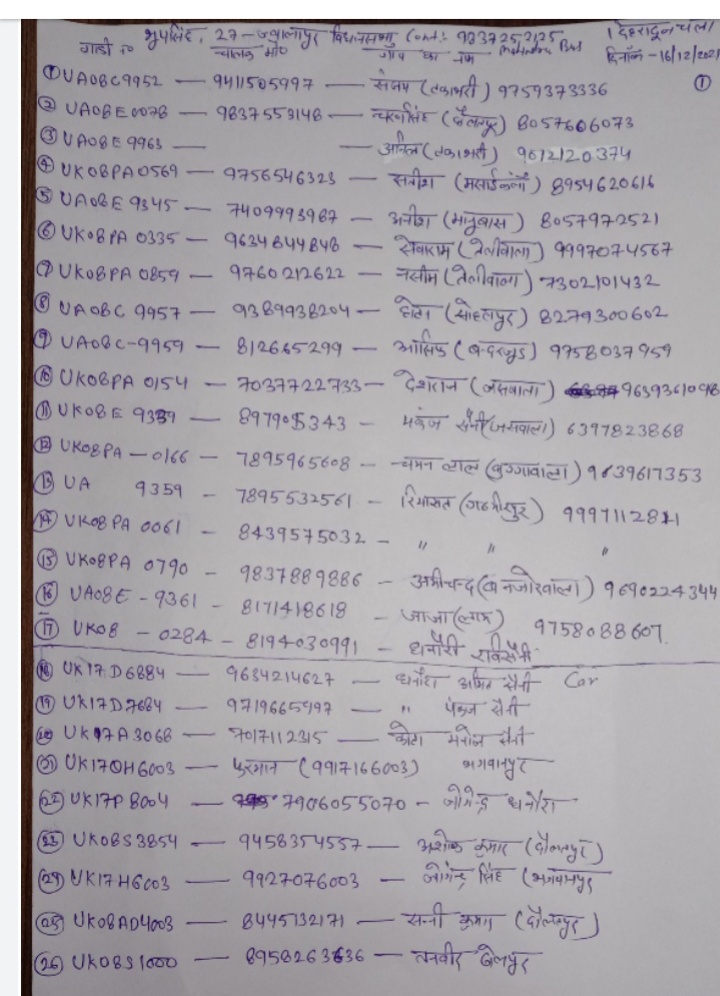 भूपसिंह, 27-ज्वालापुर विधानसभा Cont.: 9837253125 (देहरादून चलो)
गाडी no चालक मो० गाँव का नाम Mahindra Bus दिनाँक -16/12/2021
① UA08C9952 — 9411505997 — संजय (टकाभरी) 9759373336 ①
② UA08E0078 — 9837553148 — चरणसिंह (दौलतपुर) 8057606073
③ UA08E 9963 — — अनिल (टकाभरी) 9612120374
④ UK08PA0569 — 9756546323 — सतीश (मसाईकलाँ) 8954620616
⑤ UA08E 9345 — 7409993987 — अनीश (मानुबास) 8057972521
⑥ UK08PA 0335 — 9634844848 — सेवाराम (तेलीवाला) 9997074567
⑦ UK08PA 0859 — 9760212622 — नसीम (तेलीवाला) 7302101432
⑧ UA08C 9957 — 9389938204 — छोटा (सोहलपुर) 8279300602
⑨ UA08C-9959 — 812665299 — आसिफ (बन्दरजुड) 9758037959
⑩ UK08PA 0154 — 7037722733 — देशराज (जसवाला) 9639361098
⑪ UK08E 9339 — 897905343 — पकंज सैनी (जसवाला) 6397823868
⑫ UK08PA — 0166 — 7895965608 — चमन लाल (बुग्गावाला) 9639617353
⑬ UA 9359 — 7895532561 — रियासत (गढमीरपुर) 9997112811
⑭ UK08PA 0061 — 8439575032 — " " "
⑮ UK08PA 0790 — 9837889886 — अमीचन्द (बंजारेवाला) 9690224344
⑯ UA08E - 9361 — 8171418618 — जाजा (लाम) 9758088607.
⑰ UK08 — 0284 — 8194030991 — धनौरी रविसैनी
⑱ UK17D6884 — 9634214627 — धनौरा अमित सैनी Car
⑲ UK17D7684 — 9719665997 — " पंकज सैनी
⑳ UK17A3068 — 7017112315 — कोटा मनोज सैनी
㉑ UK17QH6003 — फरमान (9917166003) भगवानपुर
㉒ UK17P8004 — 7906055070 — जोगेन्द्र धनौरा
㉓ UK08S3854 — 9458354557 — अशोक कुमार (दौलतपुर)
㉔ UK17H6003 — 9927076003 — जोगेन्द्र सिंह (भगवानपुर
㉕ UK08AD4003 — 8445132171 — सन्नी कुमार (दौलतपुर)
㉖ UK08S1000 — 8958263636 — तनवीर बेलपुर